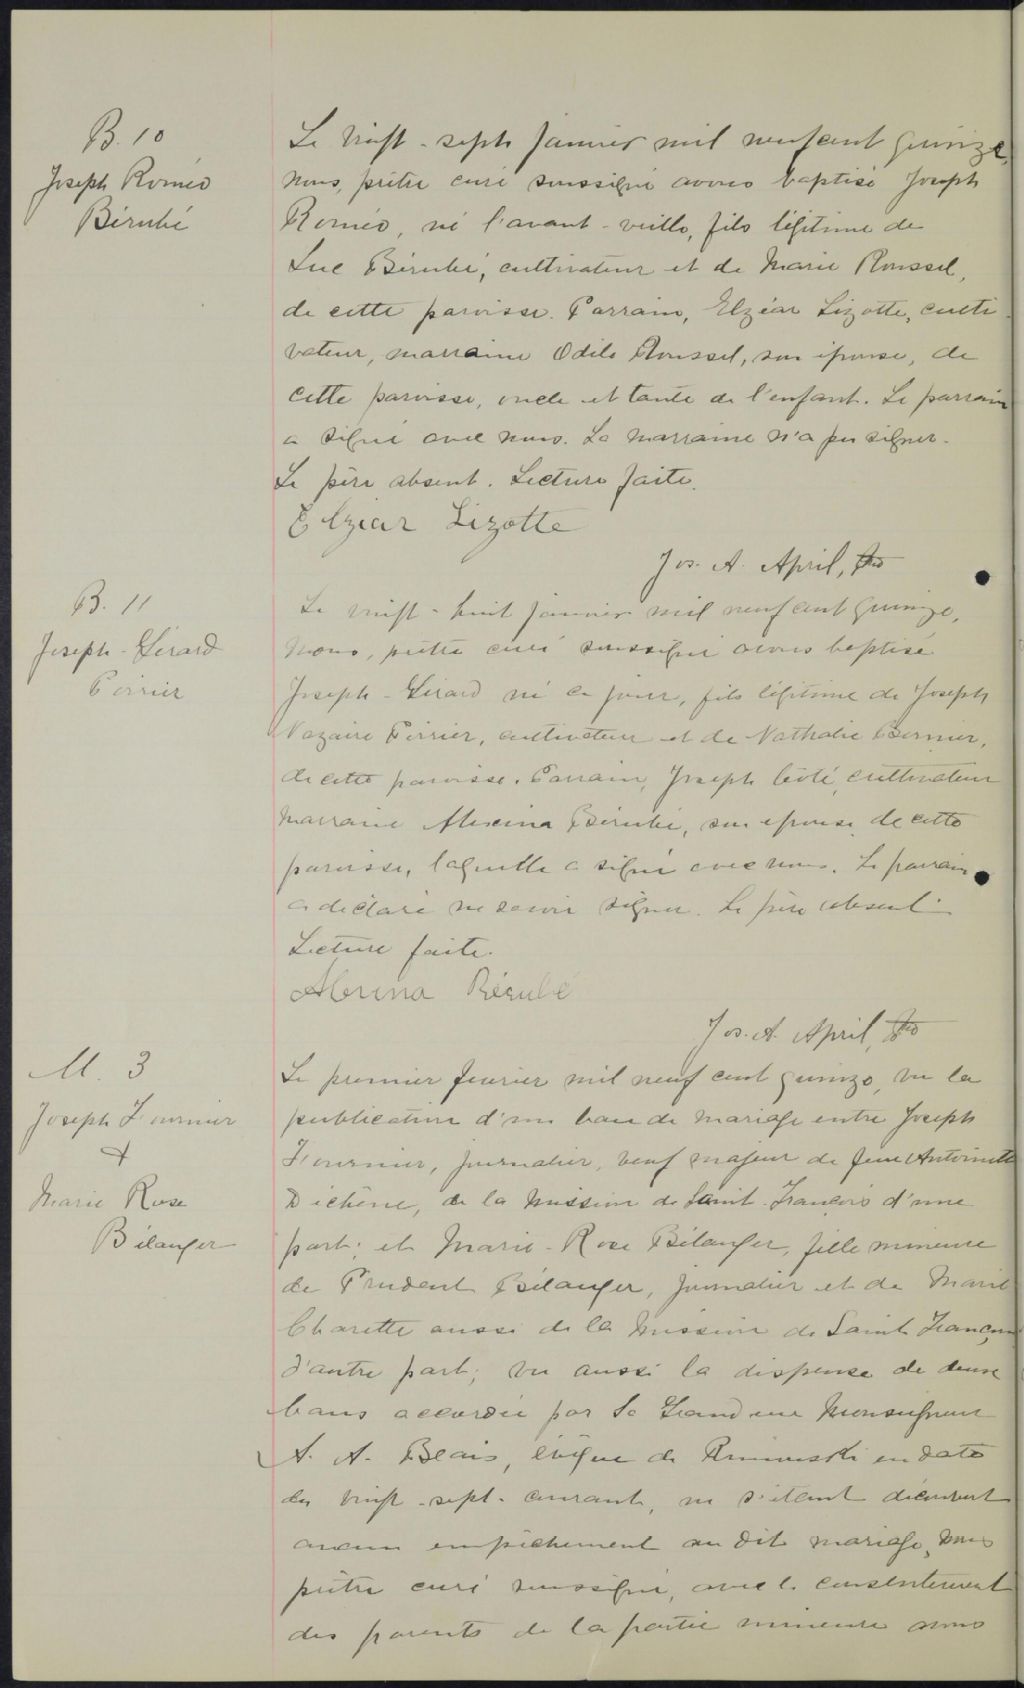 B. 10
Joseph Roméo
Bérubé
Le vingt-sept janvier mil neuf cent quinze,
nous, prêtre curé soussigné avons baptisé Joseph
Roméo, né l'avant-veille, fils légitime de
Luc Bérubé, cultivateur et de Marie Roussel,
de cette paroisse. Parrain, Elzéar Lizotte, culti-
vateur, marraine Odile Roussel, son épouse, de
cette paroisse, oncle et tante de l'enfant. Le parrain
a signé avec nous. La marraine n'a pu signer.
Le père absent. Lecture faite.
Elzear Lizotte
Jos. A. April, Ptre
B. 11
Joseph-Gérard
Poirier
Le vingt-huit janvier mil neuf cent quinze,
nous, prêtre curé soussigné avons baptisé
Joseph-Gérard né ce jour, fils légitime de Joseph
Nazaire Poirier, cultivateur et de Nathalie Bernier,
de cette paroisse. Parrain, Joseph Coté, cultivateur
marraine Bérubé, son épouse de cette
paroisse, laquelle a signé avec nous. Le parrain
a déclaré ne savoir signer. Le père absent.
Lecture faite.
Bérubé
Jos. A. April, Ptre
M. 3
Joseph Fournier
&
Marie Rose
Bélanger
Le premier fevrier mil neuf cent quinze, vu la
publication d'un ban de mariage entre Joseph
Fournier, journalier, veuf majeur de feue Antoinette
Dechêne, de la mission de Saint-François d'une
part; et Marie-Rose Bélanger, fille mineure
de Prudent Bélanger, journalier et de Marie
Charette aussi de la mission de Saint François
d'autre part; vu aussi la dispense de deux
bans accordée par Sa Grandeur Monseigneur
A. A. Blais, évêque de Rimouski en date
du vingt-sept courant, ne s'étant découvert
aucun empêchement au dit mariage, nous
prêtre curé soussigné, avec le consentement
des parents de la partie mineure avons